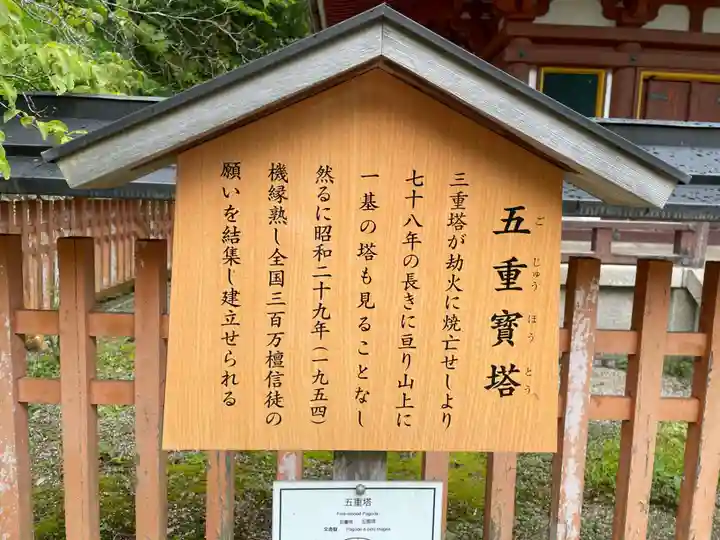 五重寶塔
ご じゅう ほう とう
三重塔が劫火に焼亡せしより
七十八年の長きに亘り山上に
一基の塔も見ることなし
然るに昭和二十九年（一九五四）
機縁熟し全国三百万檀信徒の
願いを結集し建立せられる
五重塔
Five-storied Pagoda